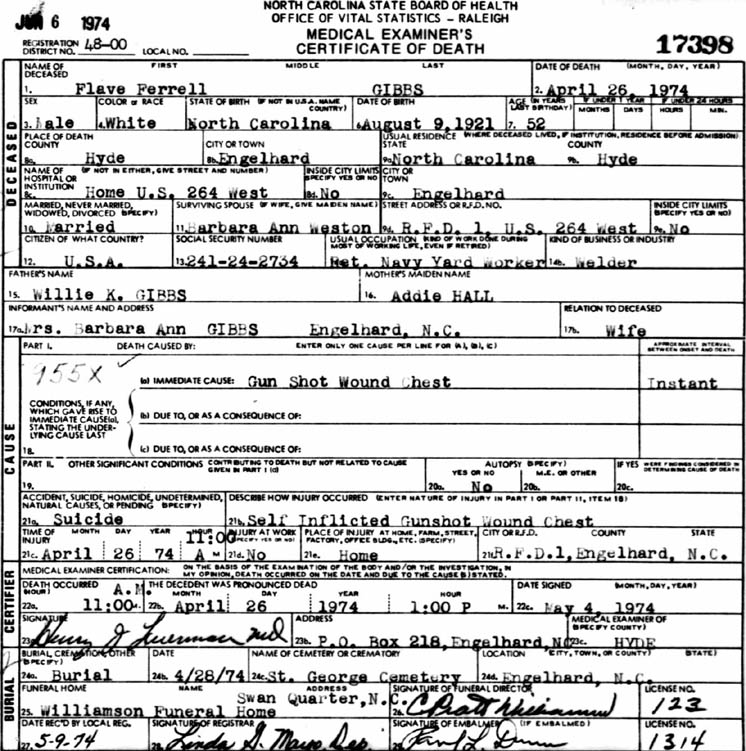 NORTH CAROLINA STATE BOARD OF HEALTH
OFFICE OF VITAL STATISTICS - RALEIGH
MEDICAL EXAMINER'S
CERTIFICATE OF DEATH
JUN 6 1974
17398
REGISTRATION DISTRICT NO. 48-00 LOCAL NO.
NAME OF DECEASED FIRST MIDDLE LAST DATE OF DEATH (MONTH, DAY, YEAR)
1. Flave Ferrell GIBBS 2. April 26, 1974
SEX COLOR OR RACE STATE OF BIRTH (IF NOT IN U.S.A. NAME COUNTRY) DATE OF BIRTH AGE (IN YEARS LAST BIRTHDAY) IF UNDER 1 YEAR MONTHS DAYS IF UNDER 24 HOURS HOURS MIN.
3. Male 4. White North Carolina 6. August 9, 1921 7. 52
PLACE OF DEATH COUNTY CITY OR TOWN USUAL RESIDENCE (WHERE DECEASED LIVED, IF INSTITUTION, RESIDENCE BEFORE ADMISSION) STATE COUNTY
8a. Hyde 8b. Engelhard 9a. North Carolina 9b. Hyde
NAME OF HOSPITAL OR INSTITUTION (IF NOT IN EITHER, GIVE STREET AND NUMBER) INSIDE CITY LIMITS (SPECIFY YES OR NO) CITY OR TOWN
8c. Home U.S. 264 West 8d. No 9c. Engelhard
MARRIED, NEVER MARRIED, WIDOWED, DIVORCED (SPECIFY) SURVIVING SPOUSE (IF WIFE, GIVE MAIDEN NAME) STREET ADDRESS OR R.F.D. NO. INSIDE CITY LIMITS (SPECIFY YES OR NO)
10. Married 11. Barbara Ann Weston 9d. R.F.D. 1, U.S. 264 West 9e. No
CITIZEN OF WHAT COUNTRY? SOCIAL SECURITY NUMBER USUAL OCCUPATION (KIND OF WORK DONE DURING MOST OF WORKING LIFE, EVEN IF RETIRED) KIND OF BUSINESS OR INDUSTRY
12. U.S.A. 13. 241-24-2734 Ret. Navy Yard Worker 14b. Welder
FATHER'S NAME MOTHER'S MAIDEN NAME
15. Willie K. GIBBS 16. Addie HALL
INFORMANT'S NAME AND ADDRESS RELATION TO DECEASED
17a. Mrs. Barbara Ann GIBBS Engelhard, N.C. 17b. Wife
PART I. DEATH CAUSED BY: ENTER ONLY ONE CAUSE PER LINE FOR (A), (B), (C) APPROXIMATE INTERVAL BETWEEN ONSET AND DEATH
955X
(a) IMMEDIATE CAUSE: Gun Shot Wound Chest Instant
CONDITIONS, IF ANY, WHICH GAVE RISE TO IMMEDIATE CAUSE(a), STATING THE UNDERLYING CAUSE LAST
(b) DUE TO, OR AS A CONSEQUENCE OF:
18. (c) DUE TO, OR AS A CONSEQUENCE OF:
PART II. OTHER SIGNIFICANT CONDITIONS CONTRIBUTING TO DEATH BUT NOT RELATED TO CAUSE GIVEN IN PART I (a) AUTOPSY (SPECIFY) YES OR NO M.E. OR OTHER IF YES WERE FINDINGS CONSIDERED IN DETERMINING CAUSE OF DEATH
19. 20a. No 20b. 20c.
ACCIDENT, SUICIDE, HOMICIDE, UNDETERMINED, NATURAL CAUSES, OR PENDING (SPECIFY) DESCRIBE HOW INJURY OCCURRED (ENTER NATURE OF INJURY IN PART I OR PART II, ITEM 18)
21a. Suicide 21b. Self Inflicted Gunshot Wound Chest
TIME OF INJURY MONTH DAY YEAR HOUR 11:00 INJURY AT WORK (SPECIFY YES OR NO) PLACE OF INJURY AT HOME, FARM, STREET, FACTORY, OFFICE BLDG., ETC. (SPECIFY) CITY OR R.F.D. COUNTY STATE
21c. April 26 74 A M 21d. No 21e. Home 21f. R.F.D.1, Engelhard, N.C.
MEDICAL EXAMINER CERTIFICATION: ON THE BASIS OF THE EXAMINATION OF THE BODY AND/OR THE INVESTIGATION, IN MY OPINION, DEATH OCCURRED ON THE DATE AND DUE TO THE CAUSE (S) STATED.
DEATH OCCURRED A.M. THE DECEDENT WAS PRONOUNCED DEAD MONTH DAY YEAR HOUR DATE SIGNED (MONTH, DAY, YEAR)
22a. 11:00 M. 22b. April 26 1974 1:00 P M. 22c. May 4, 1974
SIGNATURE ADDRESS MEDICAL EXAMINER OF (SPECIFY COUNTY)
23a. 23b. P.O. Box 218, Engelhard, NC 23c. HYDE
BURIAL, CREMATION, OTHER (SPECIFY) DATE NAME OF CEMETERY OR CREMATORY LOCATION (CITY, TOWN, OR COUNTY) STATE)
24a. Burial 24b. 4/28/74 24c. St. George Cemetery 24d. Engelhard, N.C.
FUNERAL HOME NAME ADDRESS SIGNATURE OF FUNERAL DIRECTOR LICENSE NO.
Swan Quarter, N.C.
25. Williamson Funeral Home 26. 123
DATE REC'D BY LOCAL REG. SIGNATURE OF REGISTRAR SIGNATURE OF EMBALMER (IF EMBALMED) LICENSE NO.
27. 5-9-74 28. Linda S. Mayo Dep 1314
DECEASED
CAUSE
CERTIFIER
BURIAL